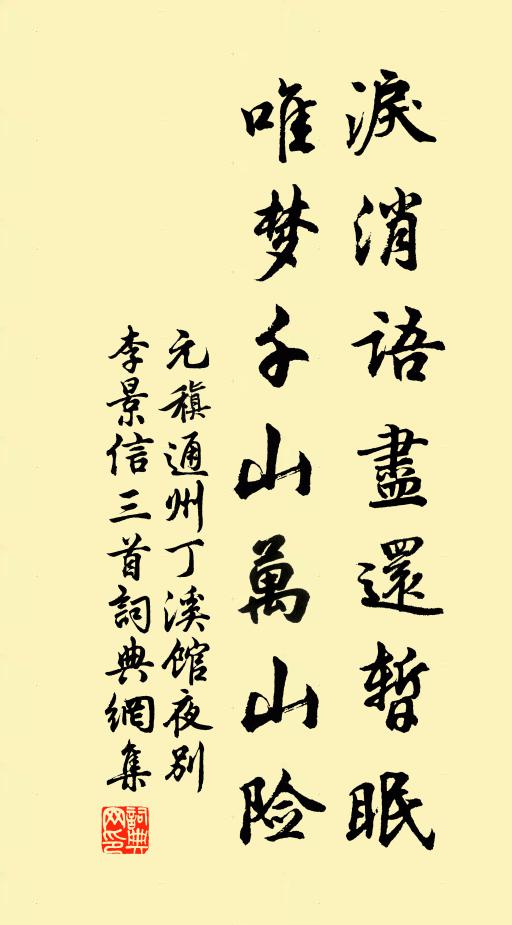 淚消語盡還暫眠
唯梦千山萬山险
元稹通州丁溪馆夜别
李景信三首詞典網集
詞典
网印